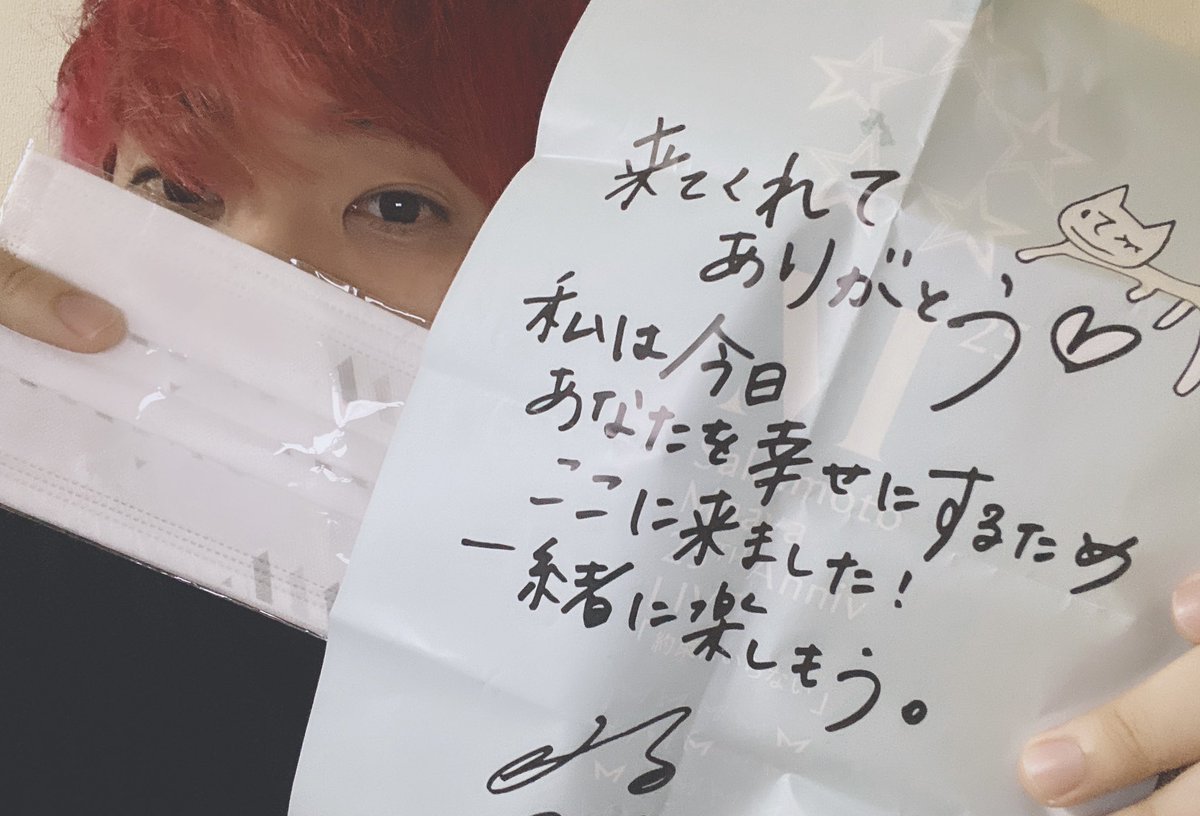 来てくれて
ありがとう♡
私は今日
あなたを幸せにするため
ここに来ました!
一緒に楽しもう。
Sakamoto
Maaya
25th Anniv
LIVE